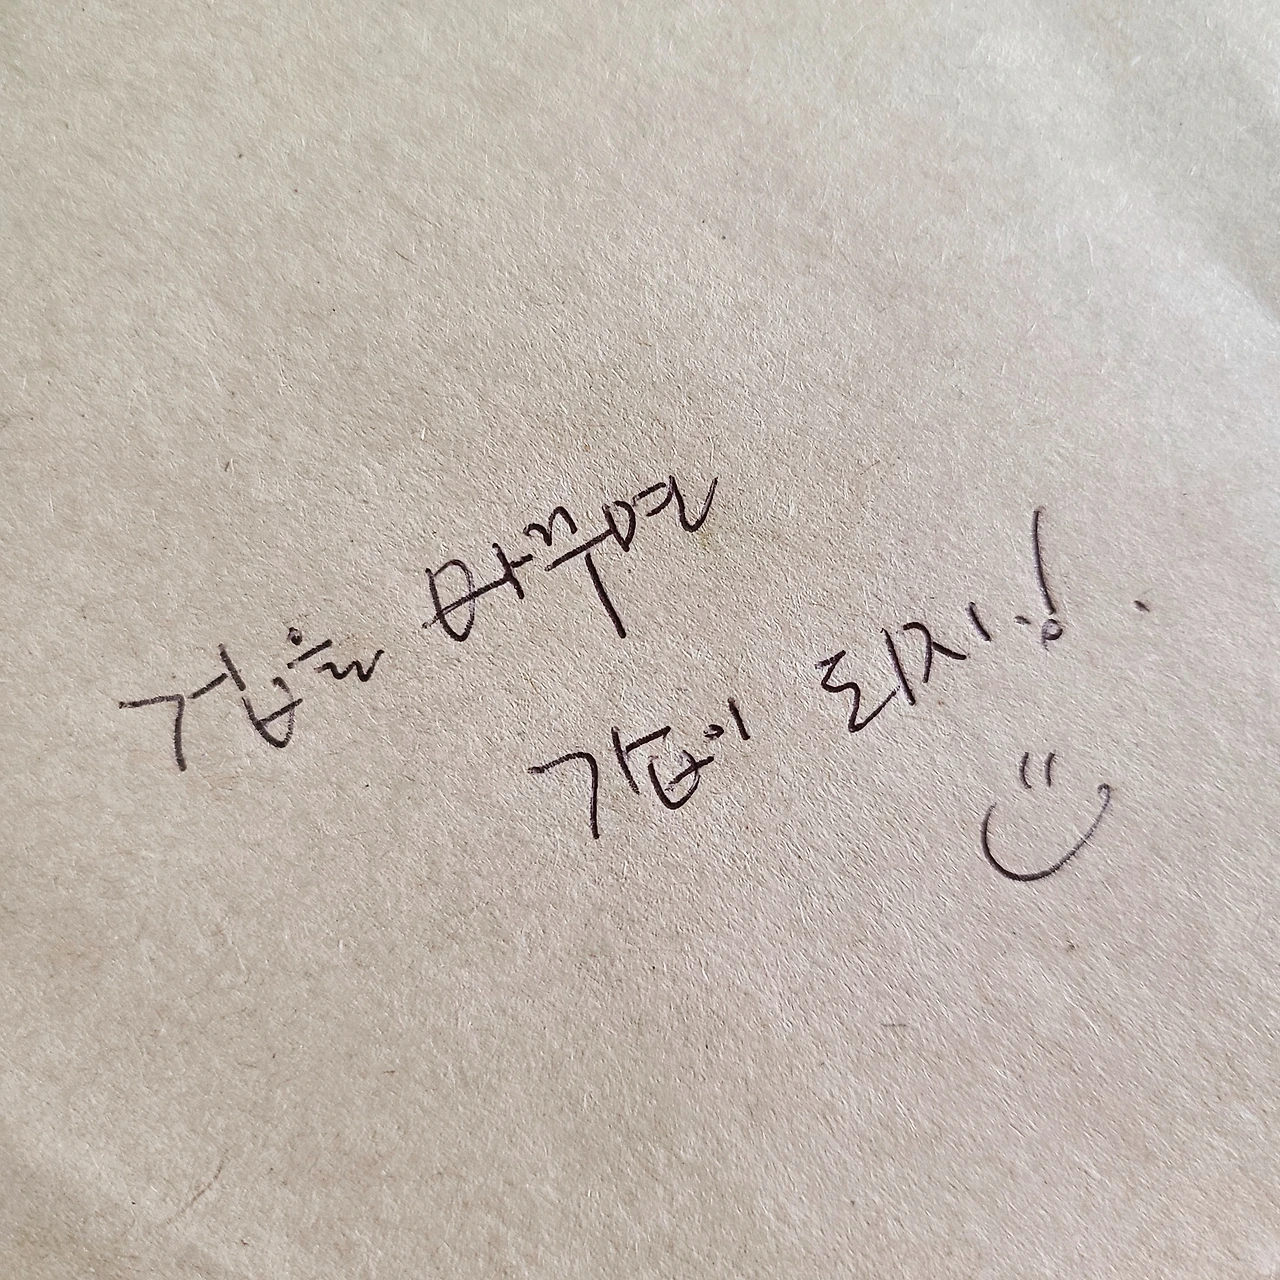 겁을 바꾸면
갑이 되지.!